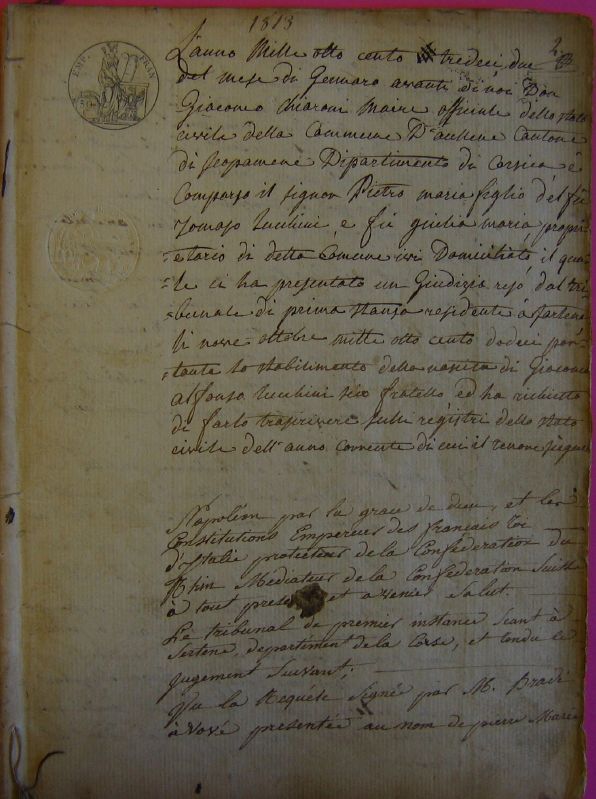 1813
2
EMP. FRAN
L'anno Mille otto cento tredeci, due
del mese di Gennaro avanti di noi Don
Giacomo Chiaroni Maire officiale dello stato
civile della Commune D'aullene Cantone
di Scopamene Dipartimento di Corsica è
Comparso il signor Pietro maria figlio del fù
Tomaso Lucchini, e fù giulia maria propri
=etario di detta Comune ivi Domiciliato il qua
=le ci ha presentato un Giudizio reso dal tri
=bunale di prima stanza residente à Sartena
li nove ottobre mille otto cento dodeci por
=tante lo stabilimento della nascita di Giacomo
alfonso Lucchini suo fratello ed ha richiesto
di farlo trascrivere sulli registri dello stato
civile dell'anno corrente di cui il tenore siegue
Napoléon par la grace de dieu, et les
Constitutions Empereur des français Roi
d'Italie protecteur de la Confederation du
Rhin Mediateur de la Confederation Suisse
à tout present et a venir Salut.
Le tribunal de premier instance séant à
Sartene, departement de la Corse, et rendu le
jugement Suivant;
Vu la Requéte Signée par M. Bradi
àvoué presentée au nom de pierre Marie